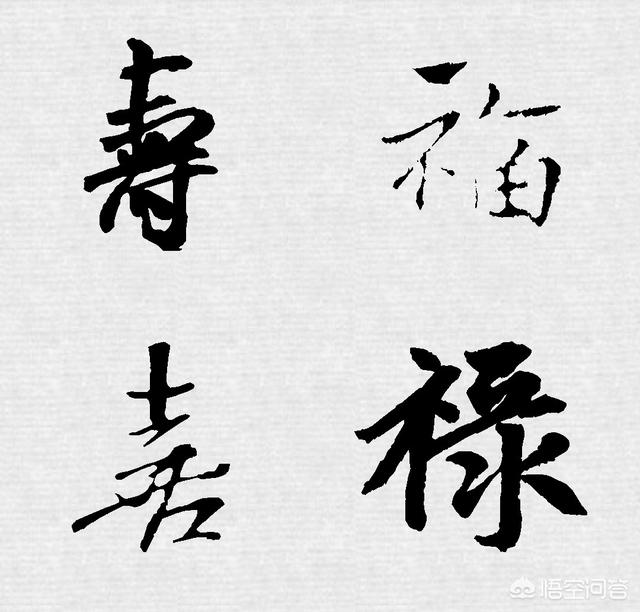 福壽
禄喜
悟空问答